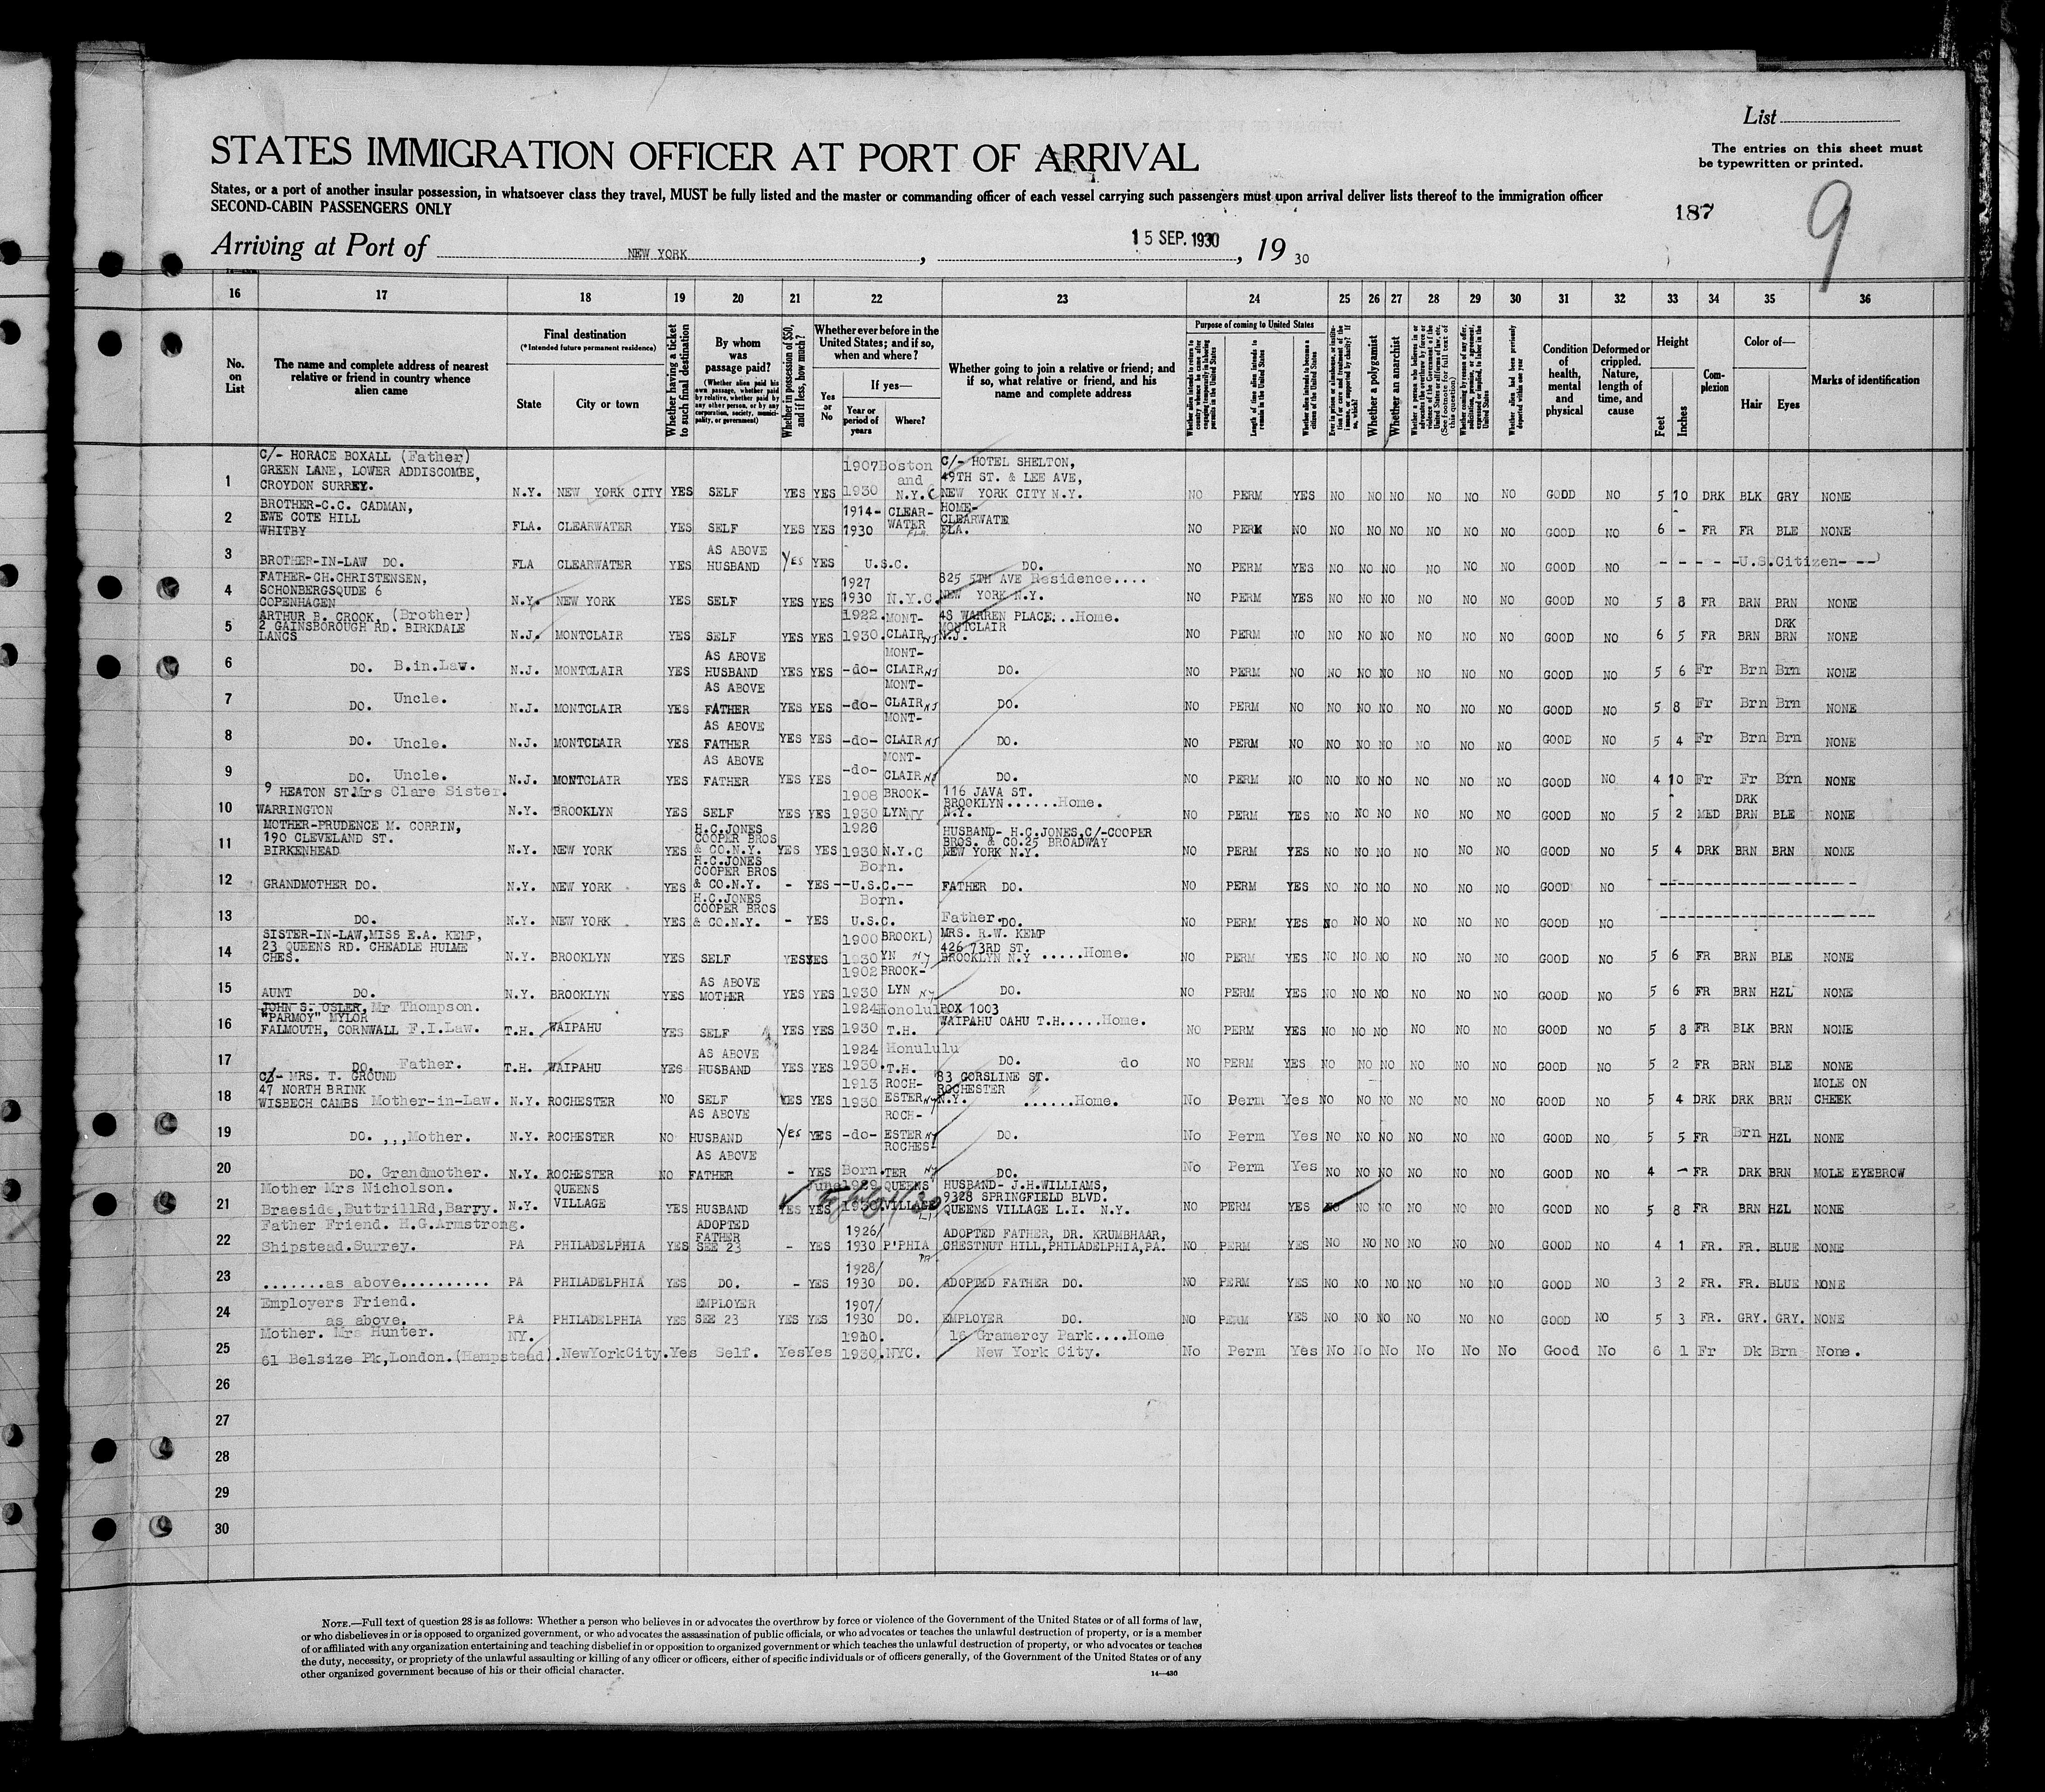 List
STATES IMMIGRATION OFFICER AT PORT OF ARRIVAL
The entries on this sheet must
be typewritten or printed.
States, or a port of another insular possession, in whatsoever class they travel, MUST be fully listed and the master or commanding officer of each vessel carrying such passengers must upon arrival deliver lists thereof to the immigration officer
SECOND-CABIN PASSENGERS ONLY
187
9
Arriving at Port of NEW YORK, 15 SEP. 1930, 19 30
16 17 18 19 20 21 22 23 24 25 26 27 28 29 30 31 32 33 34 35 36
No. on List
The name and complete address of nearest relative or friend in country whence alien came
Final destination
(*Intended future permanent residence)
State
City or town
Whether having a ticket to such final destination
By whom was passage paid?
(Whether alien paid his own passage, whether paid by relative, whether paid by any other person, or by any corporation, society, municipality, or government)
Whether in possession of $50, and if less, how much?
Whether ever before in the United States; and if so, when and where?
Yes or No
If yes—
Year or period of years
Where?
Whether going to join a relative or friend; and if so, what relative or friend, and his name and complete address
Purpose of coming to United States
Whether alien intends to return to country whence he came after engaging temporarily in laboring pursuits in the United States
Length of time alien intends to remain in the United States
Whether alien intends to become a citizen of the United States
Whether a polygamist
Whether an anarchist
Condition of health, mental and physical
Deformed or crippled. Nature, length of time, and cause
Height
Feet
Inches
Complexion
Color of—
Hair
Eyes
Marks of identification
1 C/- HORACE BOXALL (Father) GREEN LANE, LOWER ADDISCOMBE, CROYDON SURREY. N.Y. NEW YORK CITY YES SELF YES YES 1907 1930 Boston and N.Y.C C/- HOTEL SHELTON, 49TH ST. & LEE AVE, NEW YORK CITY N.Y. NO PERM YES NO NO NO NO NO NO GOOD NO 5 10 DRK BLK GRY NONE
2 BROTHER-C.C. CADMAN, EWE COTE HILL WHITBY FLA. CLEARWATER YES SELF YES YES 1914- 1930 CLEAR- WATER FLA. HOME- CLEARWATE FLA. NO PERM NO NO NO NO NO NO NO GOOD NO 6 - FR FR BLE NONE
3 BROTHER-IN-LAW DO. FLA CLEARWATER YES AS ABOVE HUSBAND Yes YES U.S.C. DO. NO PERM YES NO NO NO NO NO NO GOOD NO - - - - -U.S.Citizen- - -
4 FATHER-CH.CHRISTENSEN, SCHONBERGSQUDE 6 COPENHAGEN N.Y. NEW YORK YES SELF YES YES 1927 1930 N.Y.C. 825 5TH AVE Residence.... NEW YORK N.Y. NO PERM YES NO NO NO NO NO NO GOOD NO 5 8 FR BRN BRN NONE
5 ARTHUR B. CROOK, (Brother) 2 GAINSBOROUGH RD. BIRKDALE LANCS N.J. MONTCLAIR YES SELF YES YES 1922. 1930. MONT- CLAIR NJ 48 WARREN PLACE...Home. MONTCLAIR N.J. NO PERM NO NO NO NO NO NO NO GOOD NO 6 5 FR BRN DRK BRN NONE
6 DO. B.in.Law. N.J. MONTCLAIR YES AS ABOVE HUSBAND YES YES -do- MONT- CLAIR NJ DO. NO PERM NO NO NO NO NO NO NO GOOD NO 5 6 Fr Brn Brn NONE
7 DO. Uncle. N.J. MONTCLAIR YES AS ABOVE FATHER YES YES -do- MONT- CLAIR NJ DO. NO PERM NO NO NO NO NO NO NO GOOD NO 5 8 Fr Brn Brn NONE
8 DO. Uncle. N.J. MONTCLAIR YES AS ABOVE FATHER YES YES -do- MONT- CLAIR NJ DO. NO PERM NO NO NO NO NO NO NO GOOD NO 5 4 Fr Brn Brn NONE
9 DO. Uncle. N.J. MONTCLAIR YES AS ABOVE FATHER YES YES -do- MONT- CLAIR NJ DO. NO PERM NO NO NO NO NO NO NO GOOD NO 4 10 Fr Fr Brn NONE
10 9 HEATON ST.Mrs Clare Sister. WARRINGTON N.Y. BROOKLYN YES SELF YES YES 1908 1930 BROOK- LYN NY 116 JAVA ST. BROOKLYN......Home. N.Y. NO PERM YES NO NO NO NO NO NO GOOD NO 5 2 MED DRK BRN BLE NONE
11 MOTHER-PRUDENCE M. CORRIN, 190 CLEVELAND ST. BIRKENHEAD N.Y. NEW YORK YES H.C.JONES COOPER BROS & CO.N.Y. YES YES 1926 1930 N.Y.C HUSBAND- H.C.JONES,C/-COOPER BROS. & CO.25 BROADWAY NEW YORK N.Y. NO PERM YES NO NO NO NO NO NO GOOD NO 5 4 DRK BRN BRN NONE
12 GRANDMOTHER DO. N.Y. NEW YORK YES H.C.JONES COOPER BROS & CO.N.Y. - YES Born. --U.S.C.-- FATHER DO. NO PERM YES NO NO NO NO NO NO GOOD NO --------------------
13 DO. N.Y. NEW YORK YES H.C.JONES COOPER BROS & CO.N.Y. - YES Born. U.S.C. Father.DO. NO PERM YES NO NO NO NO NO NO GOOD NO --------------------
14 SISTER-IN-LAW,MISS E.A. KEMP, 23 QUEENS RD. CHEADLE HULME CHES. N.Y. BROOKLYN YES SELF YES YES 1900 1930 BROOKL) YN NY MRS. R.W. KEMP 426 73RD ST. BROOKLYN N.Y .....Home. NO PERM YES NO NO NO NO NO NO GOOD NO 5 6 FR BRN BLE NONE
15 AUNT DO. N.Y. BROOKLYN YES AS ABOVE MOTHER YES YES 1902 1930 BROOK- LYN NY DO. NO PERM YES NO NO NO NO NO NO GOOD NO 5 6 FR BRN HZL NONE
16 JOHN S. OSLER, Mr Thompson. "PARMOY" MYLOR FALMOUTH, CORNWALL F.I.Law. T.H. WAIPAHU YES SELF YES YES 1924 1930 Honolulu T.H. BOX 1003 WAIPAHU OAHU T.H.....Home. NO PERM YES NO NO NO NO NO NO GOOD NO 5 8 FR BLK BRN NONE
17 DO. Father. T.H. WAIPAHU YES AS ABOVE HUSBAND YES YES 1924 1930. Honululu T.H. DO. do NO PERM YES NO NO NO NO NO NO GOOD NO 5 2 FR BRN BLE NONE
18 C/- MRS. T. GROUND 47 NORTH BRINK WISBECH CAMBS Mother-in-Law. N.Y. ROCHESTER NO SELF YES YES 1913 1930 ROCH- ESTER NY 83 GORSLINE ST. ROCHESTER N.Y. ......Home. No Perm Yes NO NO NO NO NO NO GOOD NO 5 4 DRK DRK BRN MOLE ON CHEEK
19 DO. ,,,Mother. N.Y. ROCHESTER NO AS ABOVE HUSBAND Yes YES -do- ROCH- ESTER NY DO. No Perm Yes NO NO NO NO NO NO GOOD NO 5 5 FR Brn HZL NONE
20 DO. Grandmother. N.Y. ROCHESTER NO AS ABOVE FATHER - YES Born. ROCHES- TER NY DO. No Perm Yes NO NO NO NO NO NO GOOD NO 4 - FR DRK BRN MOLE EYEBROW
21 Mother Mrs Nicholson. Braeside,ButtrillRd,Barry. N.Y. QUEENS VILLAGE YES HUSBAND YES YES June1929 1930. QUEENS VILLAGE L.I. HUSBAND- J.H.WILLIAMS, 9328 SPRINGFIELD BLVD. QUEENS VILLAGE L.I. N.Y. NO PERM YES NO NO NO NO NO NO GOOD NO 5 8 FR BRN HZL NONE
22 Father Friend. H.G.Armstrong. Shipstead.Surrey. PA PHILADELPHIA YES ADOPTED FATHER SEE 23 - YES 1926/ 1930 P'PHIA PA. ADOPTED FATHER, DR. KRUMBHAAR, CHESTNUT HILL,PHILADELPHIA,PA. NO PERM YES NO NO NO NO NO NO GOOD NO 4 1 FR. FR. BLUE NONE
23 .......as above.......... PA PHILADELPHIA YES DO. - YES 1928/ 1930 DO. ADOPTED FATHER DO. NO PERM YES NO NO NO NO NO NO GOOD NO 3 2 FR. FR. BLUE NONE
24 Employers Friend. as above. PA PHILADELPHIA YES EMPLOYER SEE 23 YES YES 1907/ 1930 DO. EMPLOYER DO. NO PERM YES NO NO NO NO NO NO GOOD NO 5 3 FR. GRY. GRY. NONE
25 Mother. Mrs Hunter. 61 Belsize Pk,London.(Hampstead). NY. NewYorkCity. Yes Self. Yes Yes 1910. 1930. NYC. 16 Gramercy Park....Home New York City. No Perm Yes No No No No No No Good No 6 1 Fr Dk Brn None.
26
27
28
29
30
NOTE.—Full text of question 28 is as follows: Whether a person who believes in or advocates the overthrow by force or violence of the Government of the United States or of all forms of law,
or who disbelieves in or is opposed to organized government, or who advocates the assassination of public officials, or who advocates or teaches the unlawful destruction of property, or is a member
of or affiliated with any organization entertaining and teaching disbelief in or opposition to organized government or which teaches the unlawful destruction of property, or who advocates or teaches
the duty, necessity, or propriety of the unlawful assaulting or killing of any officer or officers, either of specific individuals or of officers generally, of the Government of the United States or of any
other organized government because of his or their official character.
14—430